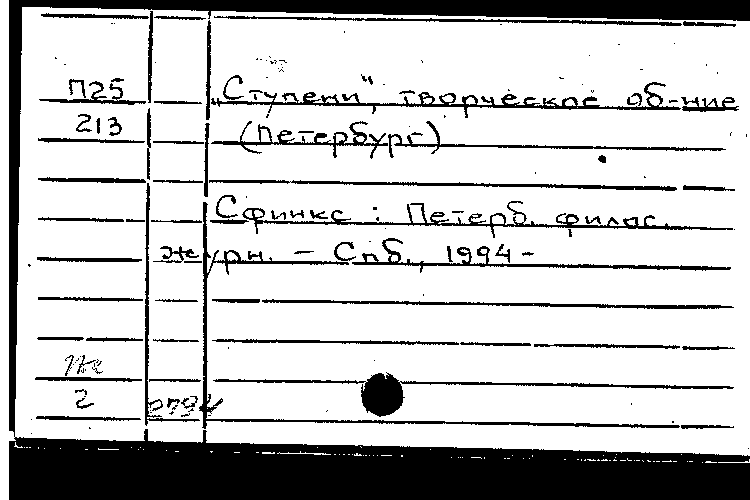 П25 „Ступени", творческое об-ние
213 (Петербург)
Сфинкс : Петерб. филос.
журн. – Спб., 1994-
2